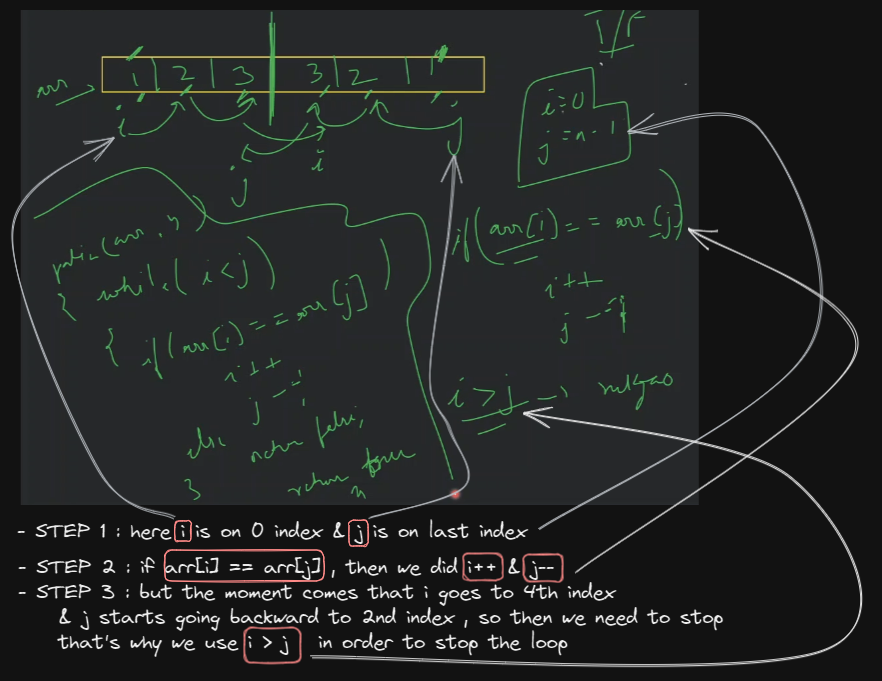 T/F
arr
1 | 2 | 3 3 | 2 | 1
i
j
i
j
i = 0
j = n - 1
if (arr[i] == arr[j])
i++
j--
i > j →
(arr, n)
{ while (i < j)
{ if (arr[i] == arr[j])
i++
j--;
else return false;
}
return true
- STEP 1 : here i is on 0 index & j is on last index
- STEP 2 : if arr[i] == arr[j] , then we did i++ & j--
- STEP 3 : but the moment comes that i goes to 4th index
& j starts going backward to 2nd index , so then we need to stop
that's why we use i > j in order to stop the loop